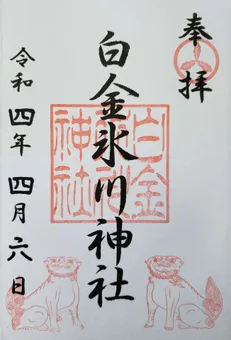 奉拝
白金氷川神社
令和四年四月六日
白金氷川神社